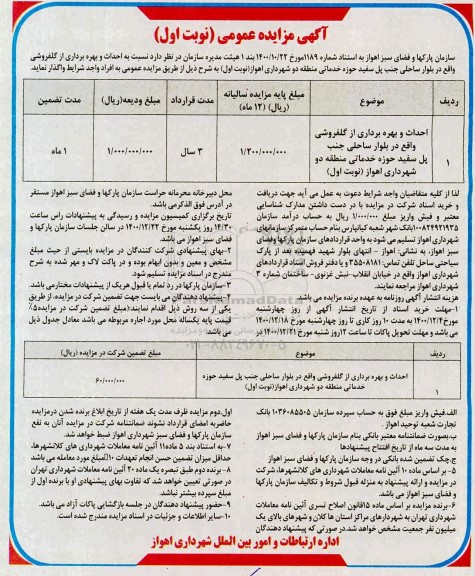 آگهی مزایده عمومی (نوبت اول)
سازمان پارکها و فضای سبز اهواز به استناد شماره ۱۱۸۹مورخ ۱۴۰۰/۱۰/۲۲ بند ۱ هیئت مدیره سازمان در نظر دارد نسبت به احداث و بهره برداری از گلفروشی
واقع در بلوار ساحلی جنب پل سفید حوزه خدماتی منطقه دو شهرداری اهواز(نوبت اول) به شرح ذیل از طریق مزایده عمومی به افراد واجد شرایط واگذار نماید.
ردیف
موضوع
مبلغ پایه مزایده سالیانه (ریال) (۱۲ ماه)
مدت قرارداد
مبلغ ودیعه(ریال)
مدت تضمین
۱
احداث و بهره برداری از گلفروشی
واقع در بلوار ساحلی جنب
پل سفید حوزه خدماتی منطقه دو
شهرداری اهواز (نوبت اول)
۱/۲۰۰/۰۰۰/۰۰۰
۳ سال
۱/۰۰۰/۰۰۰/۰۰۰
۱ ماه
لذا از کلیه متقاضیان واجد شرایط دعوت به عمل می آید جهت دریافت
و خرید اسناد شرکت در مزایده با در دست داشتن مدارک شناسایی
معتبر و فیش واریز مبلغ ۱/۰۰۰/۰۰۰ ریال به حساب درآمد سازمان
۱۰۰۸۲۴۹۲۱۹۳۵بانک شهر شعبه کیانپارس بنام حساب متمرکز سازمانهای
شهرداری اهواز تسلیم می شود به واحد قراردادهای سازمان پارکها وفضای
سبز اهواز به نشانی: اهواز – انتهای بلوار شهید فهمیده بعد از پارک
سیاحتی ساحل تلفن تماس: ۳۵۵۰۸۱۸۱ و یا دفتر فروش اسناد قراردادهای
شهرداری اهواز واقع در خیابان انقلاب-نبش غزنوی- ساختمان شماره ۳
شهرداری اهواز مراجعه نمایند.
هزینه انتشار آگهی روزنامه به عهده برنده مزایده می باشد.
۱-مهلت خرید اسناد از تاریخ انتشار آگهی از روز چهارشنبه
مورخ۱۴۰۰/۱۲/۴ به مدت ۱۰ روز کاری تا روز چهارشنبه مورخ ۱۴۰۰/۱۲/۱۸
می باشد و مهلت تحویل پاکات تا ساعت ۱۲روز شنبه مورخ ۱۴۰۰/۱۲/۲۱ در
محل دبیرخانه محرمانه حراست سازمان پارکها و فضای سبز اهواز مستقر
در آدرس فوق الذکرمی باشد.
تاریخ برگزاری کمیسیون مزایده و رسیدگی به پیشنهادات راس ساعت
۱۴/۳۰ روز یکشنبه مورخ ۱۴۰۰/۱۲/۲۲ در سالن جلسات سازمان پارکها و
فضای سبز اهواز می باشد.
۲-بهای پیشنهادی شرکت کنندگان در مزایده بایستی از حیث مبلغ
مشخص و معین و بدون ابهام بوده و در پاکت لاک و مهر شده به شرح
مندرج در اسناد مزایده تسلیم شود.
۳-سازمان پارکها در رد تمام یا قبول هریک از پیشنهادات مختارمی باشد.
۴-پیشنهاد دهندگان می بایست جهت تضمین شرکت در مزایده، از طریق
یکی از سه روش ذیل اقدام نمایند:(مبلغ تضمین شرکت در مزایده۵٪
قیمت پایه یکساله محل مورد اجاره مربوطه می باشد معادل جدول ذیل
می باشد.
ردیف
موضوع
مبلغ تضمین شرکت در مزایده (ریال)
۱
احداث و بهره برداری از گلفروشی واقع در بلوار ساحلی جنب پل سفید حوزه
خدماتی منطقه دو شهرداری اهواز(نوبت اول)
۶۰/۰۰۰/۰۰۰
الف.فیش واریز مبلغ فوق به حساب سپرده سازمان ۱۰۳۶۰۸۵۵۰۵ بانک
تجارت شعبه توحید اهواز .
ب.بصورت ضمانتنامه معتبر بانکی بنام سازمان پارکها و فضای سبز اهواز
به مدت سه ماه از تاریخ افتتاح پیشنهادها
ج.چک تضمین شده بانکی در وجه سازمان پارکها و فضای سبز اهواز
۵- بر اساس ماده ۱۰ آئین نامه معاملات شهرداری های کلانشهرها، شرکت
در مزایده و ارائه پیشنهاد به منزله قبول شروط و تکالیف سازمان پارکها
و فضای سبز اهواز می باشد.
۶-برنده مزایده بر اساس ماده ۱۵قانون اصلاح تسری آئین نامه معاملات
شهرداری تهران به شهرداری های مراکز استان ها کلان و شهرهای بالای یک
میلیون نفر جمعیت مشخص خواهد شد.در صورتی که پیشنهاد دهندگان
اول،دوم مزایده ظرف مدت یک هفته از تاریخ ابلاغ برنده شدن درمزایده
حاضربه امضای قرارداد نشوند ضمانتنامه شرکت در مزایده آنان به نفع
سازمان پارکها و فضای سبز شهرداری اهواز ضبط خواهد شد.
۷-به استناد بند ۵ ماده۱۱ آئین نامه معاملات شهرداری های کلانشهرها،
حداقل میزان تضمین حسن انجام تعهدات ۱۰٪مبلغ مورد معامله می باشد
۸- برنده دوم طبق تبصره یک ماده ۲۰ آئین نامه معاملات شهرداری تهران
در صورتی تعیین خواهد شد که تفاوت بهای پیشنهادی او با برنده اول از
مبلغ سپرده بیشتر نباشد.
۹-حضور پیشنهاد دهندگان در جلسه بازگشایی پاکات آزاد می باشد.
۱۰-سایر اطلاعات و جزئیات در اسناد مزایده مندرج شده است.
اداره ارتباطات و امور بین الملل شهرداری اهواز